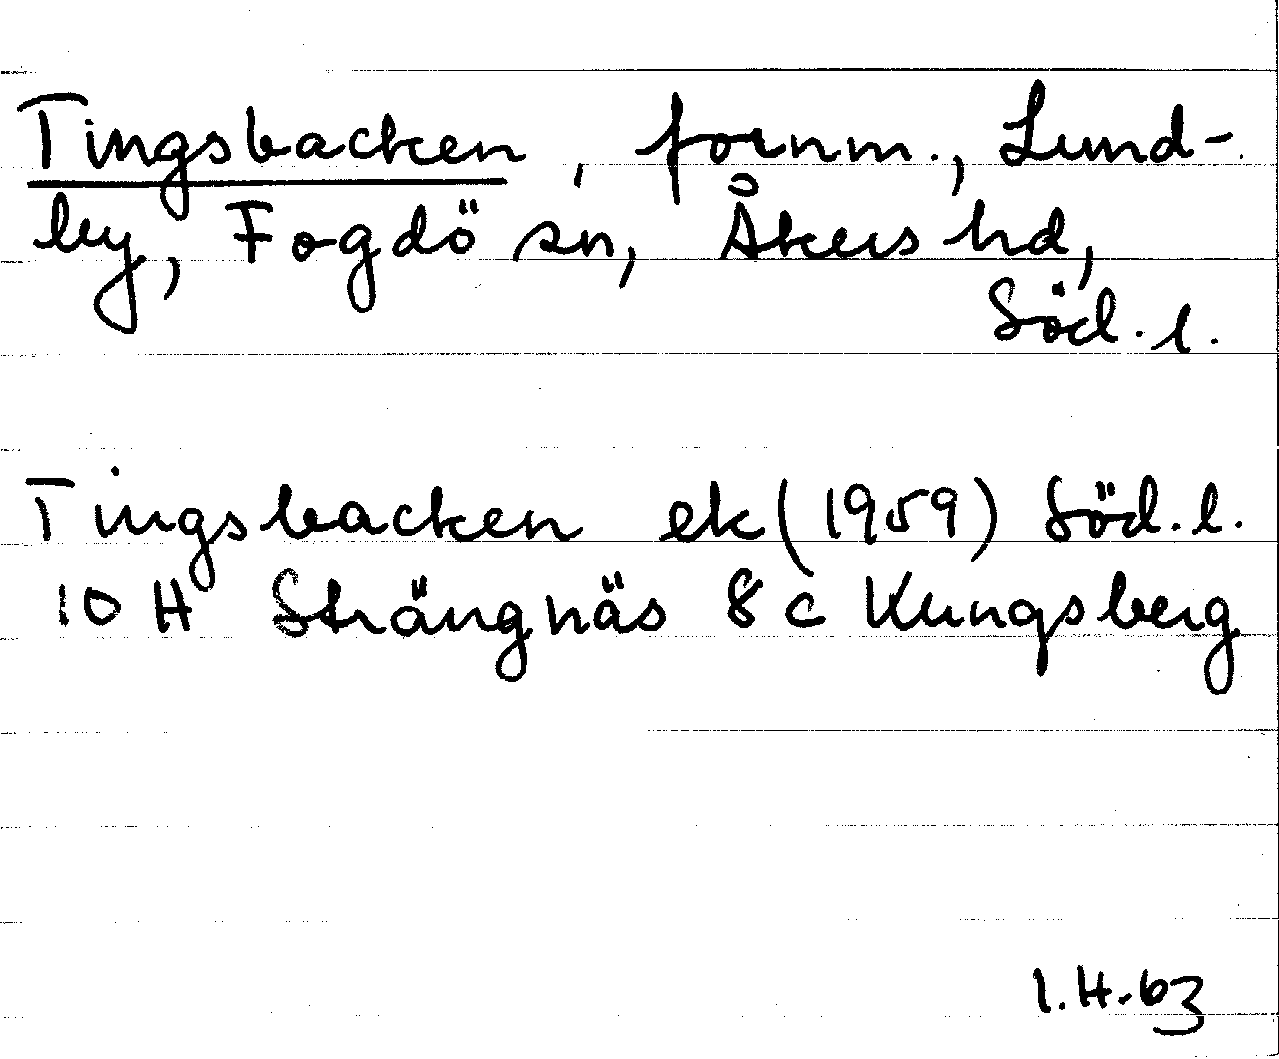 Tingsbacken, fornm., Lund-
by, Fogdö sn, Åkers hd,
Söd. l.
Tingsbacken ek (1959) Söd. l.
10 H Strängnäs 8 c Kungsberg
I.H. 63